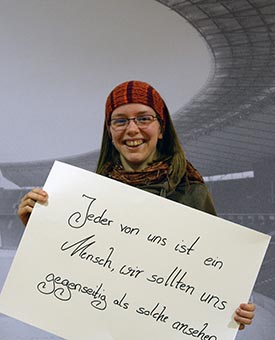 Jeder von uns ist ein
Mensch, wir sollten uns
gegenseitig als solche ansehen